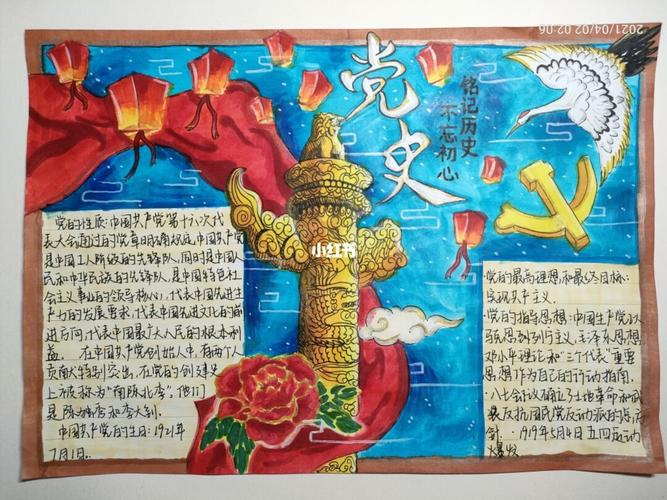 2021/04/02 02:06
党史
铭记历史
不忘初心
小红书
党的性质:中国共产党第十六次代
表大会通过的党章明确规定,中国共产党
是中国工人阶级的先锋队,同时是中国人
民和中华民族的先锋队,是中国特色社
会主义事业的领导核心,代表中国先进生
产力的发展要求,代表中国先进文化的前
进方向,代表中国最广大人民的根本利
益。 在中国共产党创始人中,有两个人
贡献特别突出,在党的创建史
上被称为“南陈北李”,他们
是陈独秀和李大钊.
中国共产党的生日:1921年
7月1日.
党的最高理想和最终目标:
实现共产主义.
·党的指导思想:中国共产党以
马克思列宁主义,毛泽东思想,
邓小平理论和“三个代表”重要
思想作为自己的行动指南.
·八七会议确定了土地革命和武
装反抗国民党反动派的总方
针. ·1919年5月4日五四运动
爆发